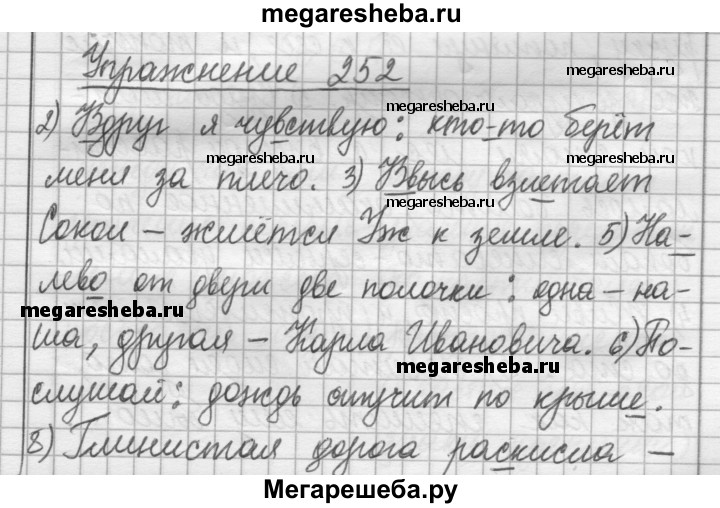 megaresheba.ru
Упражнение 252
megaresheba.ru
2) Вдруг я чувствую: кто-то берёт
megaresheba.ru
меня за плечо. 3) Ввысь взлетает
megaresheba.ru
Сокол – жмётся Уж к земле. 5) На-
лево от двери две полочки: одна – на-
megaresheba.ru
ша, другая – Карла Ивановича. 6) По-
megaresheba.ru
слушай: дождь стучит по крыше.
8) Глинистая дорога раскисла –
Мегарешеба.ру